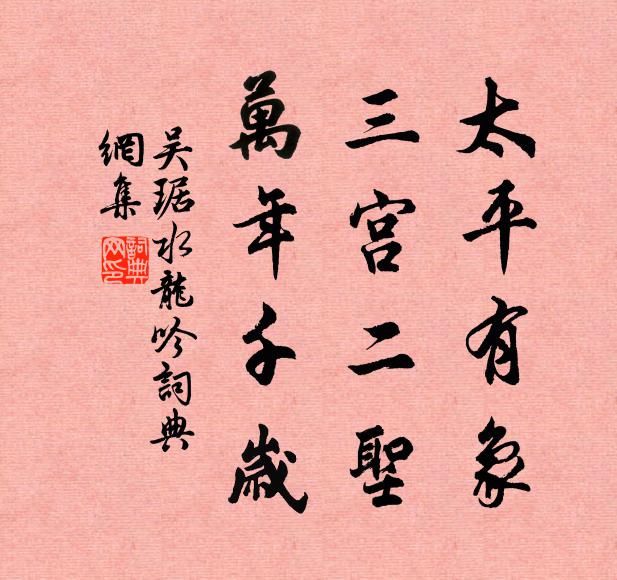 太平有象
三宫二聖
萬年千歲
吴琚水龍吟詞典
網集
詞典
网印